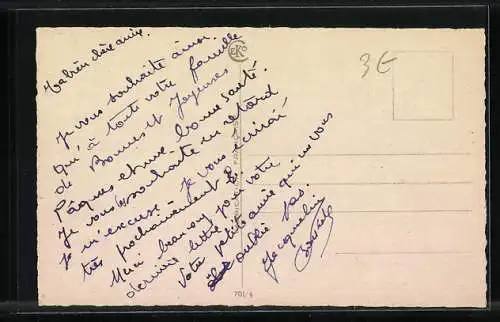 Ma bien chère amie.
Je vous souhaite ainsi
qu'à toute votre famille
de Bonnes et Joyeuses
Pâques et une bonne santé.
Je vous souhaite en retard
je m'excuse. Je vous écrirai
très prochainement &
Merci beaucoup pour votre
dernière lettre
Votre petite amie qui ne vous
oublie pas.
Jacqueline
EKO
3€
701/6